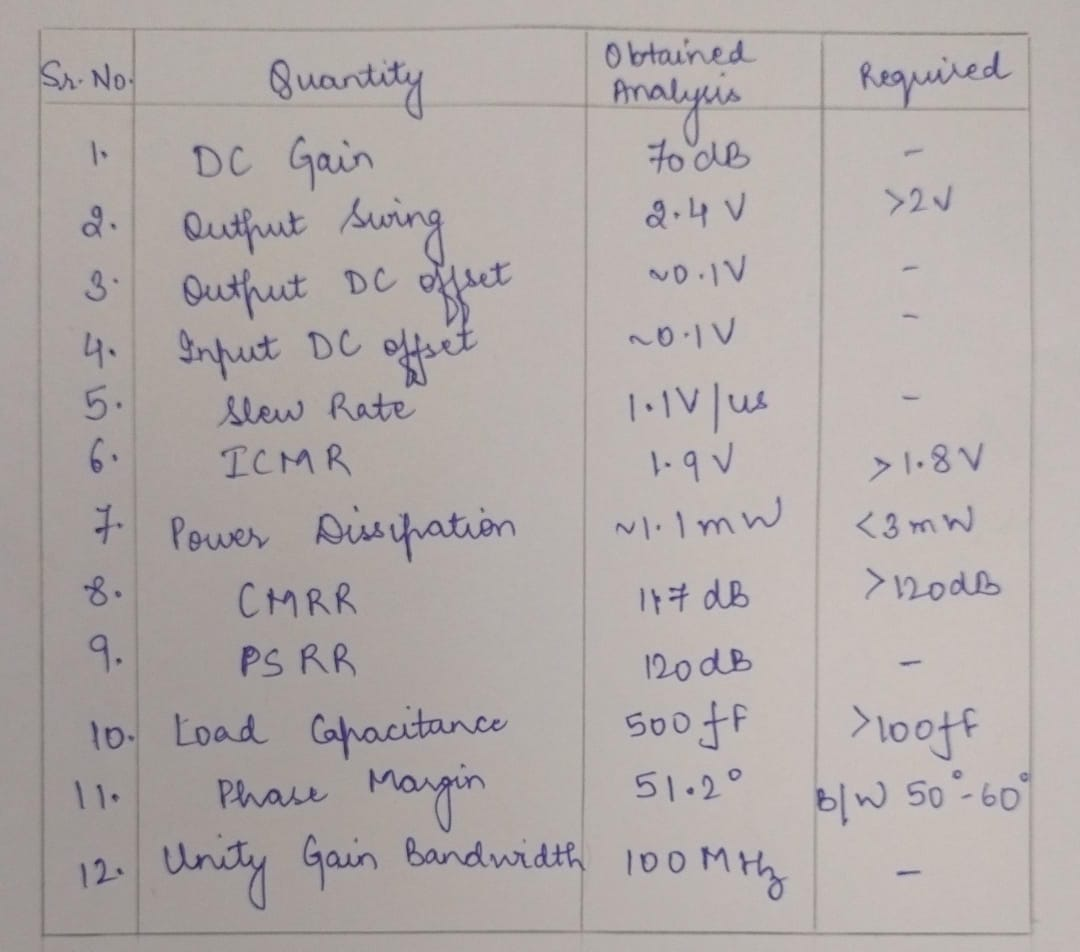 Sr. No. Quantity Obtained Analysis Required
1. DC Gain 70 dB -
2. Output Swing 2.4 V >2V
3. Output DC offset ~0.1V -
4. Input DC offset ~0.1V -
5. Slew Rate 1.1V/us -
6. ICMR 1.9 V >1.8 V
7. Power Dissipation ~1.1 mW <3 mW
8. CMRR dB >120dB
9. PSRR 120dB -
10. Load Capacitance 500 fF >100fF
11. Phase Margin 51.2° B/W 50°-60°
12. Unity Gain Bandwidth 100 MHz -